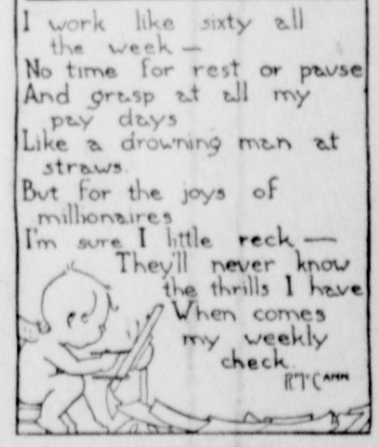 I work like sixty all
the week —
No time for rest or pause
And grasp at all my
pay days
Like a drowning man at
straws.
But for the joys of
millionaires
I'm sure I little reck —
They'll never know
the thrills I have
When comes
my weekly
check.
R.T.Cann